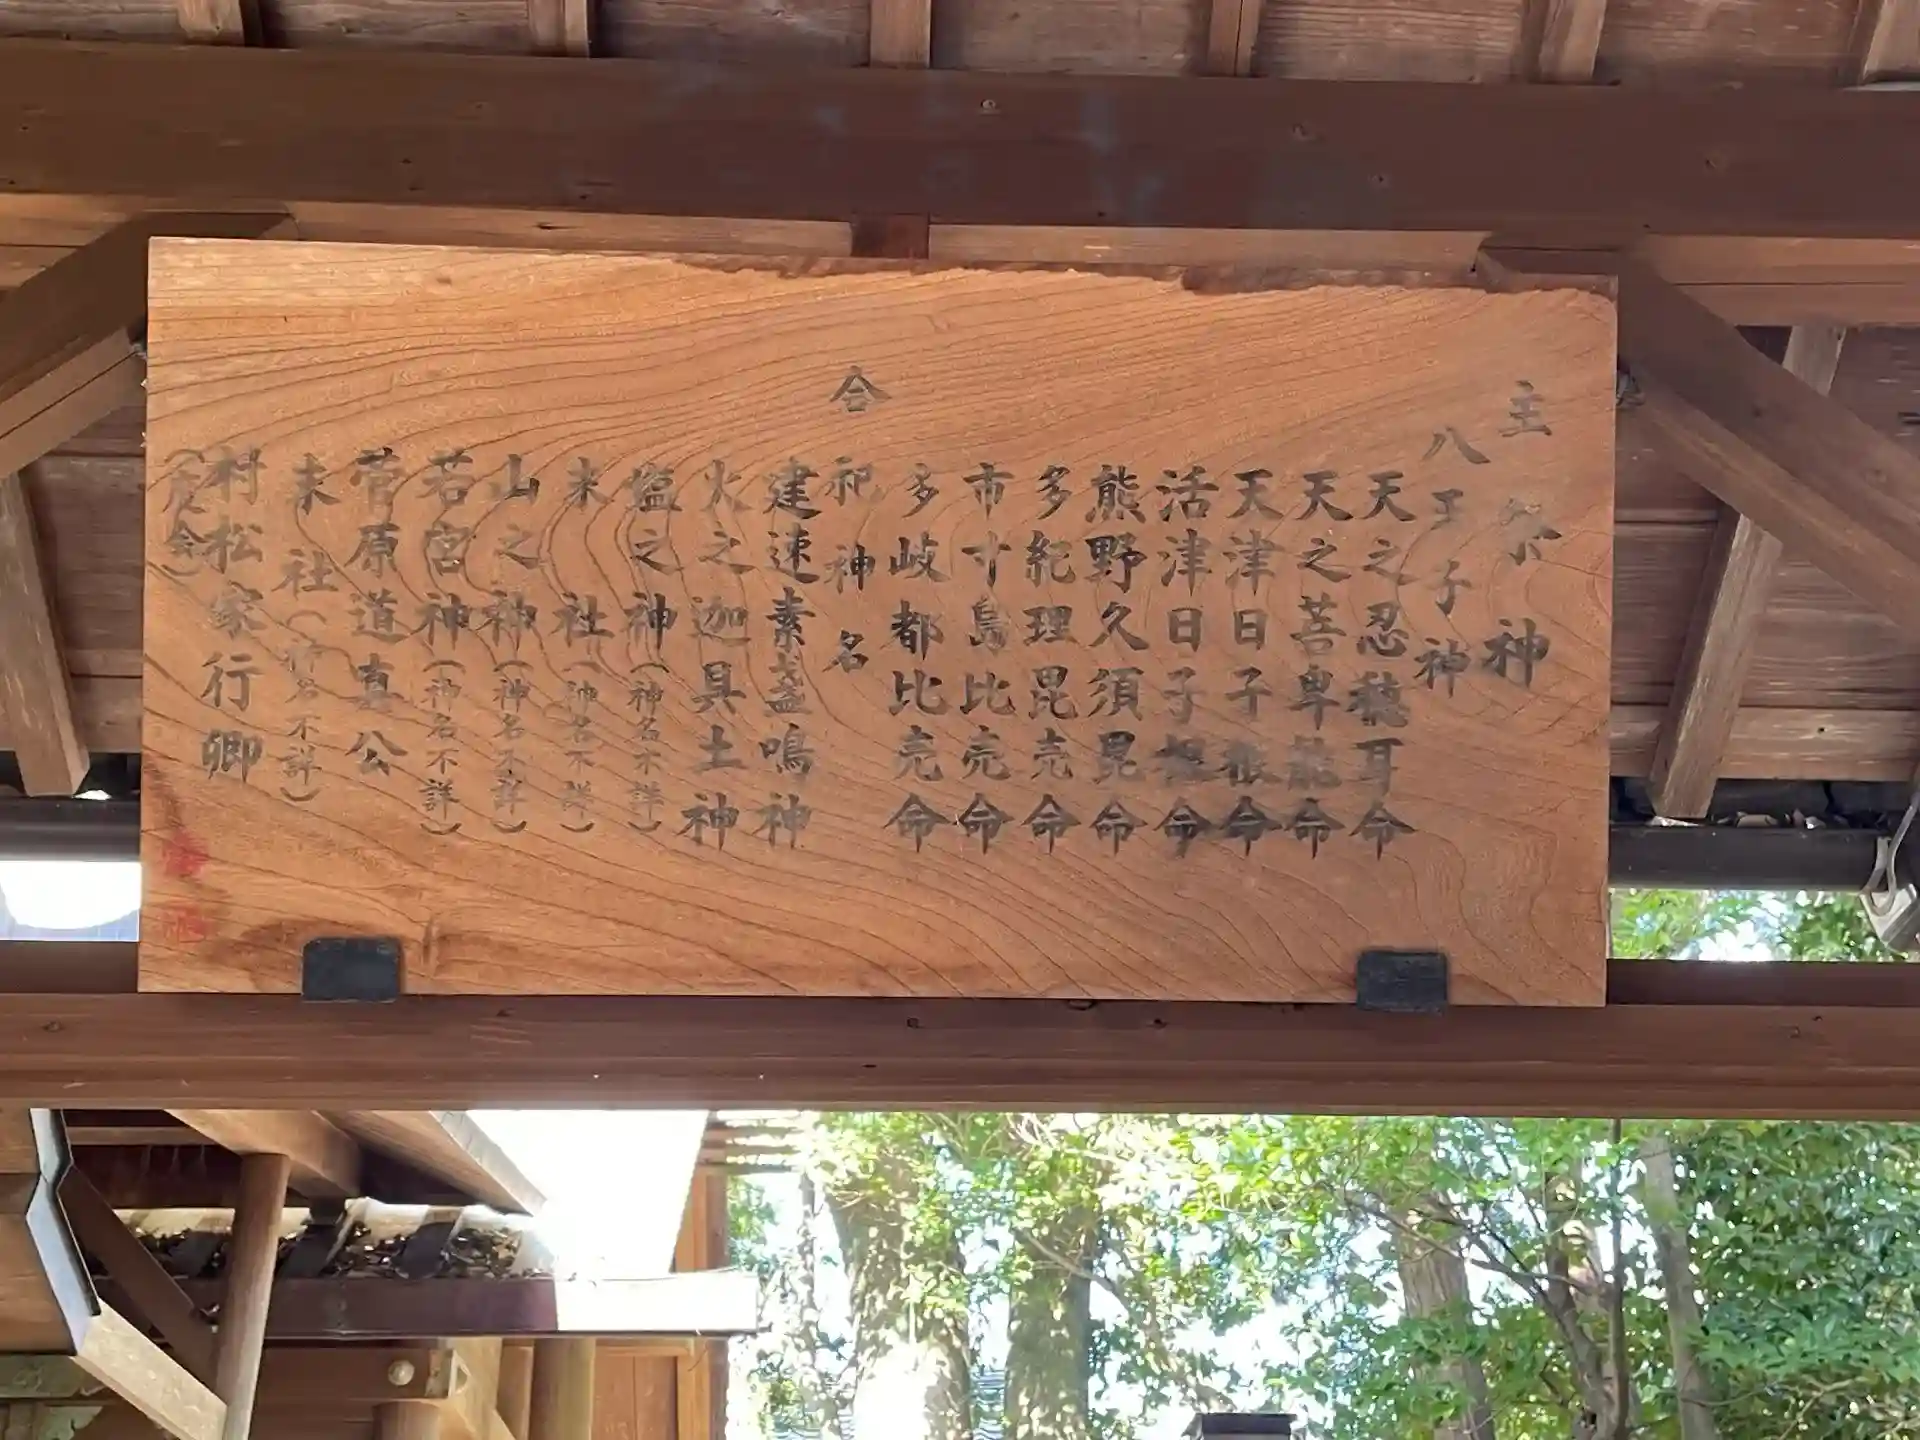 主祭神
八王子神
天之忍穂耳命
天之菩卑能命
天津日子根命
活津日子根命
熊野久須毘命
多紀理毘売命
市寸島比売命
多岐都比売命
合祀神名
建速素盞鳴神
火之迦具土神
塩之神(神名不詳)
末社(神名不詳)
山之神(神名不詳)
若宮神(神名不詳)
菅原道真公
末社(神名不詳)
村松家行卿
(度会)